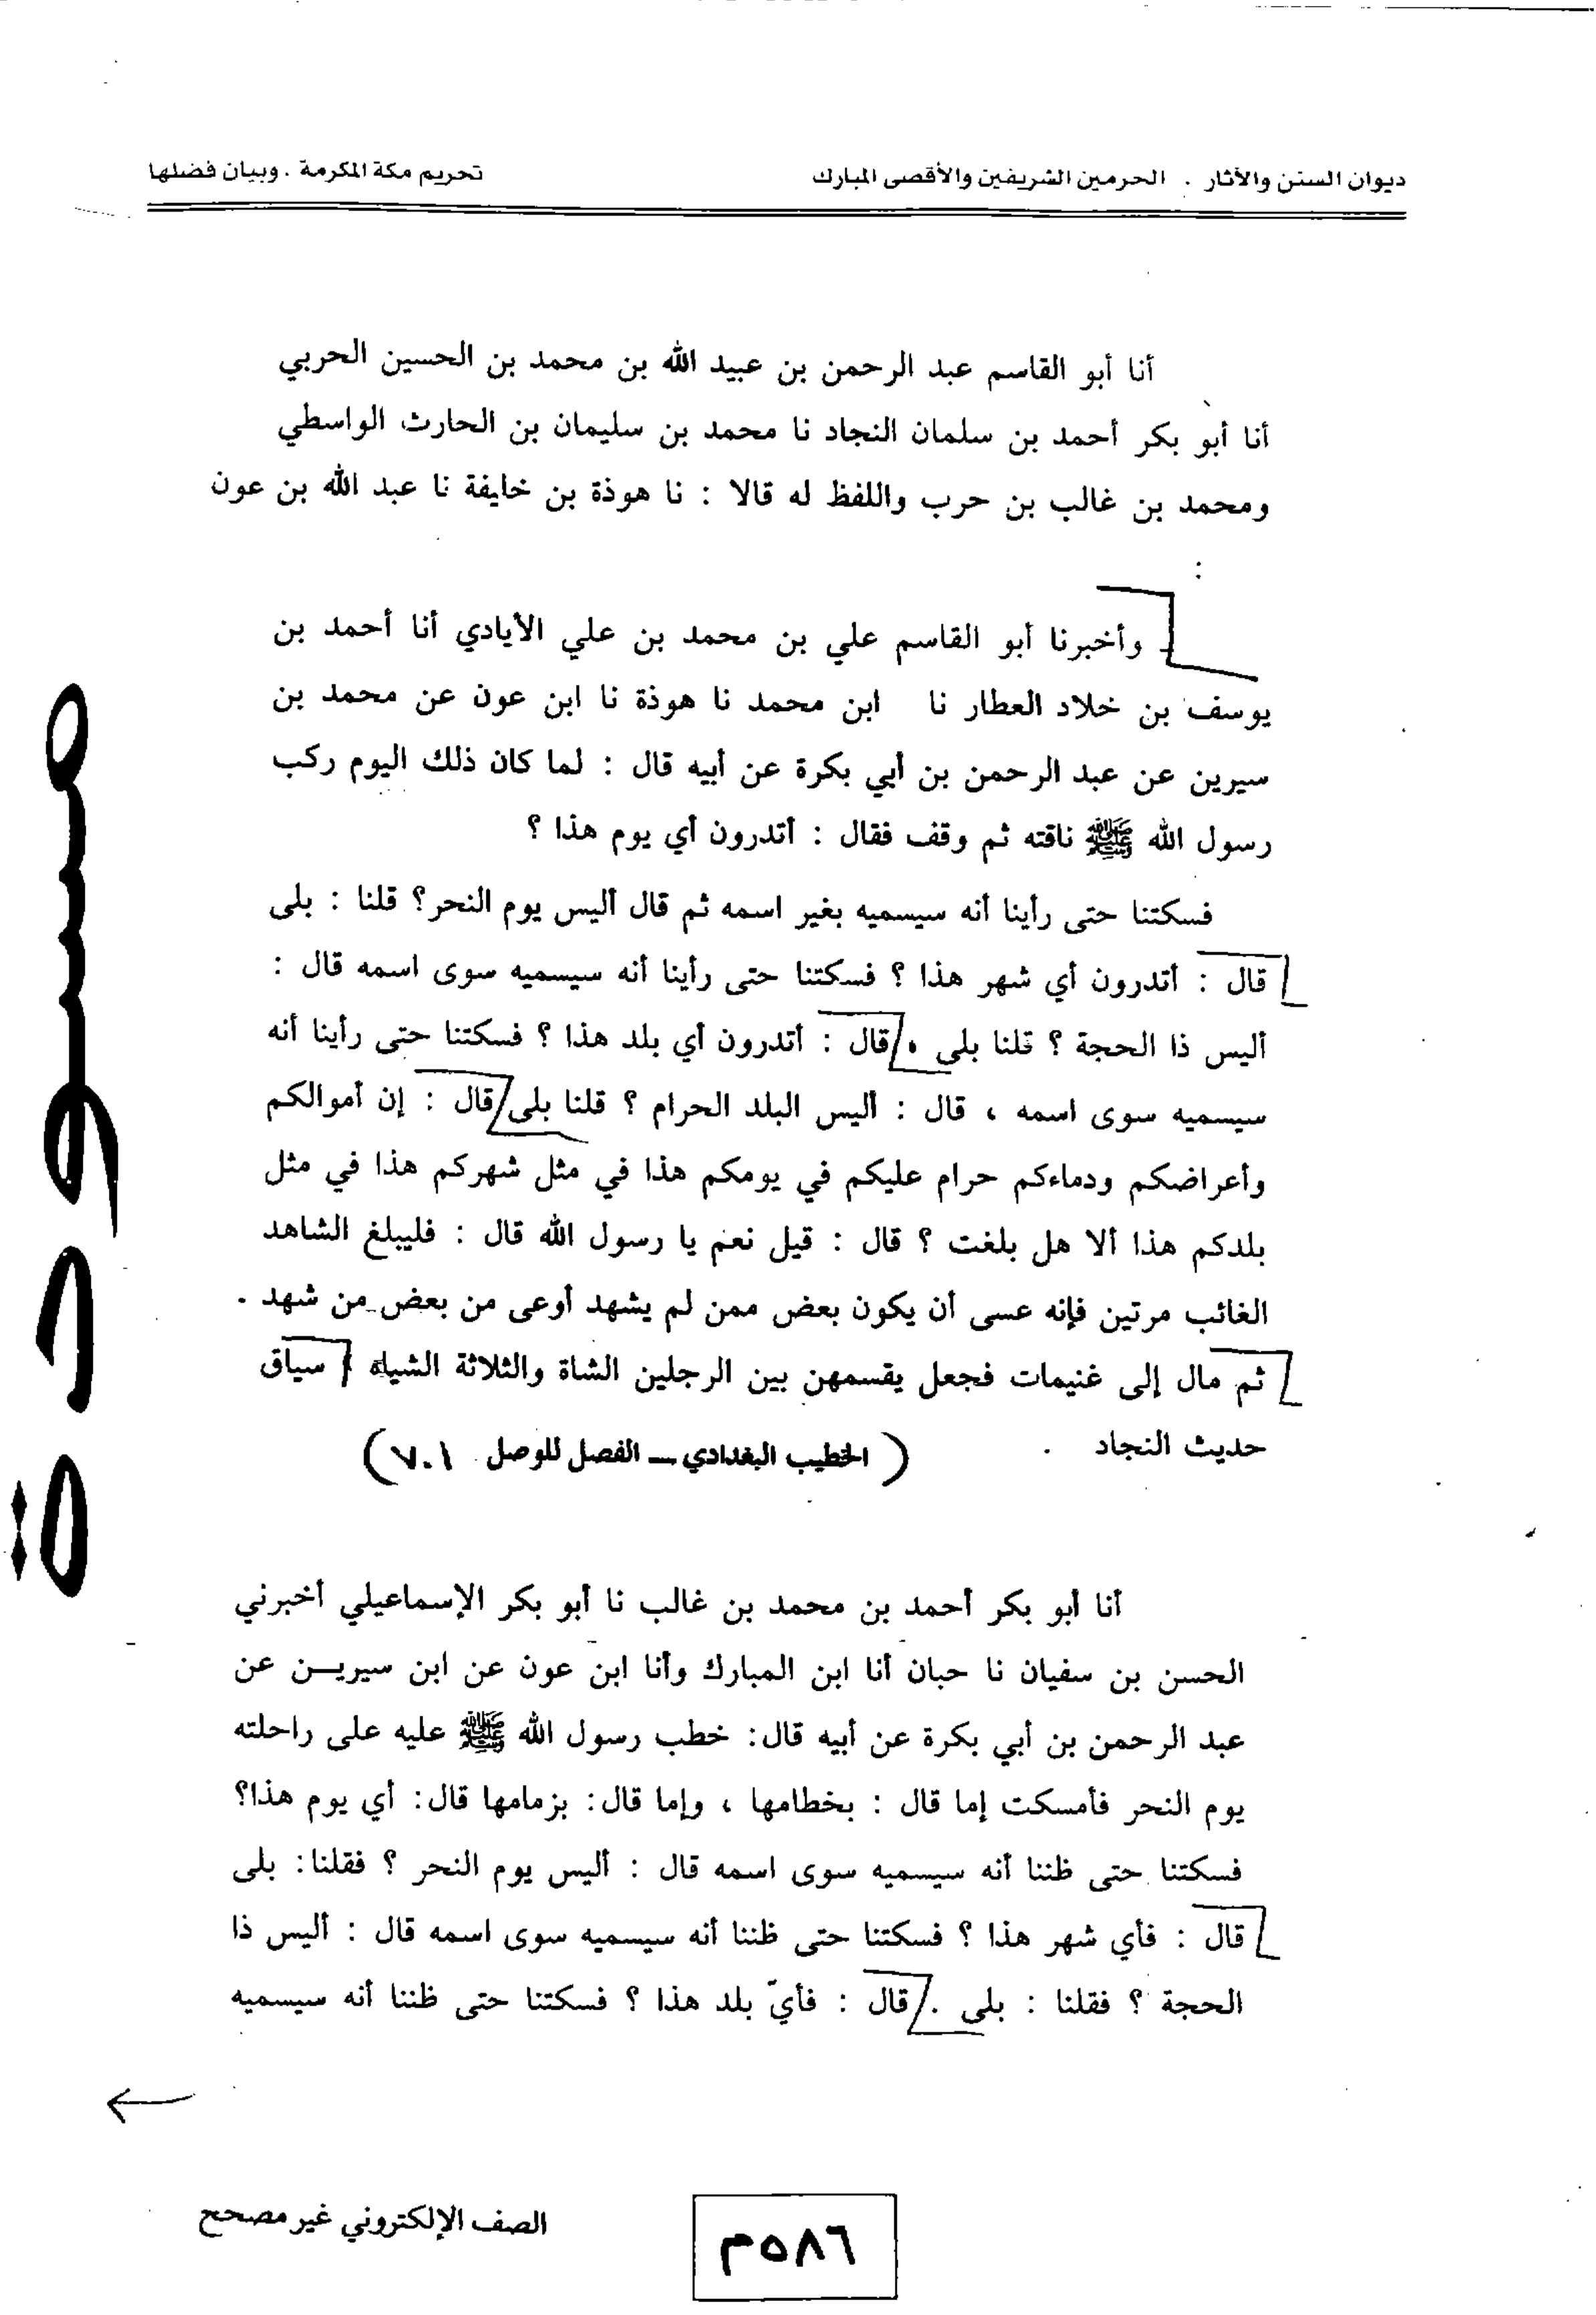 ديوان السنن والآثار . الحرمين الشريفين والأقصى المبارك
تحريم مكة المكرمة . وبيان فضلها
أنا أبو القاسم عبد الرحمن بن عبيد الله بن محمد بن الحسين الحربي
أنا أبو بكر أحمد بن سلمان النجاد نا محمد بن سليمان بن الحارث الواسطي
ومحمد بن غالب بن حرب واللفظ له قالا : نا هوذة بن خايفة نا عبد الله بن عون
:
وأخبرنا أبو القاسم علي بن محمد بن علي الأيادي أنا أحمد بن
يوسف بن خلاد العطار نا ابن محمد نا هوذة نا ابن عون عن محمد بن
سيرين عن عبد الرحمن بن أبي بكرة عن أبيه قال : لما كان ذلك اليوم ركب
رسول الله ﷺ ناقته ثم وقف فقال : أتدرون أي يوم هذا ؟
فسكتنا حتى رأينا أنه سيسميه بغير اسمه ثم قال أليس يوم النحر؟ قلنا : بلى
قال : أتدرون أي شهر هذا ؟ فسكتنا حتى رأينا أنه سيسميه سوى اسمه قال :
أليس ذا الحجة ؟ قلنا بلى . قال : أتدرون أي بلد هذا ؟ فسكتنا حتى رأينا أنه
سيسميه سوى اسمه ، قال : أليس البلد الحرام ؟ قلنا بلى قال : إن أموالكم
وأعراضكم ودماءكم حرام عليكم في يومكم هذا في مثل شهركم هذا في مثل
بلدكم هذا ألا هل بلغت ؟ قال : قيل نعم يا رسول الله قال : فليبلغ الشاهد
الغائب مرتين فإنه عسى أن يكون بعض ممن لم يشهد أوعى من بعض من شهد .
ثم مال إلى غنيمات فجعل يقسمهن بين الرجلين الشاة والثلاثة الشياه سياق
حديث النجاد . ( الخطيب البغدادي – الفصل للوصل ٧٠١ )
أنا أبو بكر أحمد بن محمد بن غالب نا أبو بكر الإسماعيلي أخبرني
الحسن بن سفيان نا حبان أنا ابن المبارك وأنا ابن عون عن ابن سيريــن عن
عبد الرحمن بن أبي بكرة عن أبيه قال: خطب رسول الله ﷺ عليه على راحلته
يوم النحر فأمسكت إما قال : بخطامها ، وإما قال: بزمامها قال: أي يوم هذا؟
فسكتنا حتى ظننا أنه سيسميه سوى اسمه قال : أليس يوم النحر ؟ فقلنا: بلى
قال : فأي شهر هذا ؟ فسكتنا حتى ظننا أنه سيسميه سوى اسمه قال : أليس ذا
الحجة ؟ فقلنا : بلى . قال : فأيّ بلد هذا ؟ فسكتنا حتى ظننا أنه سيسميه
مسودة
الصف الإلكتروني غير مصحح
٥٨٦م